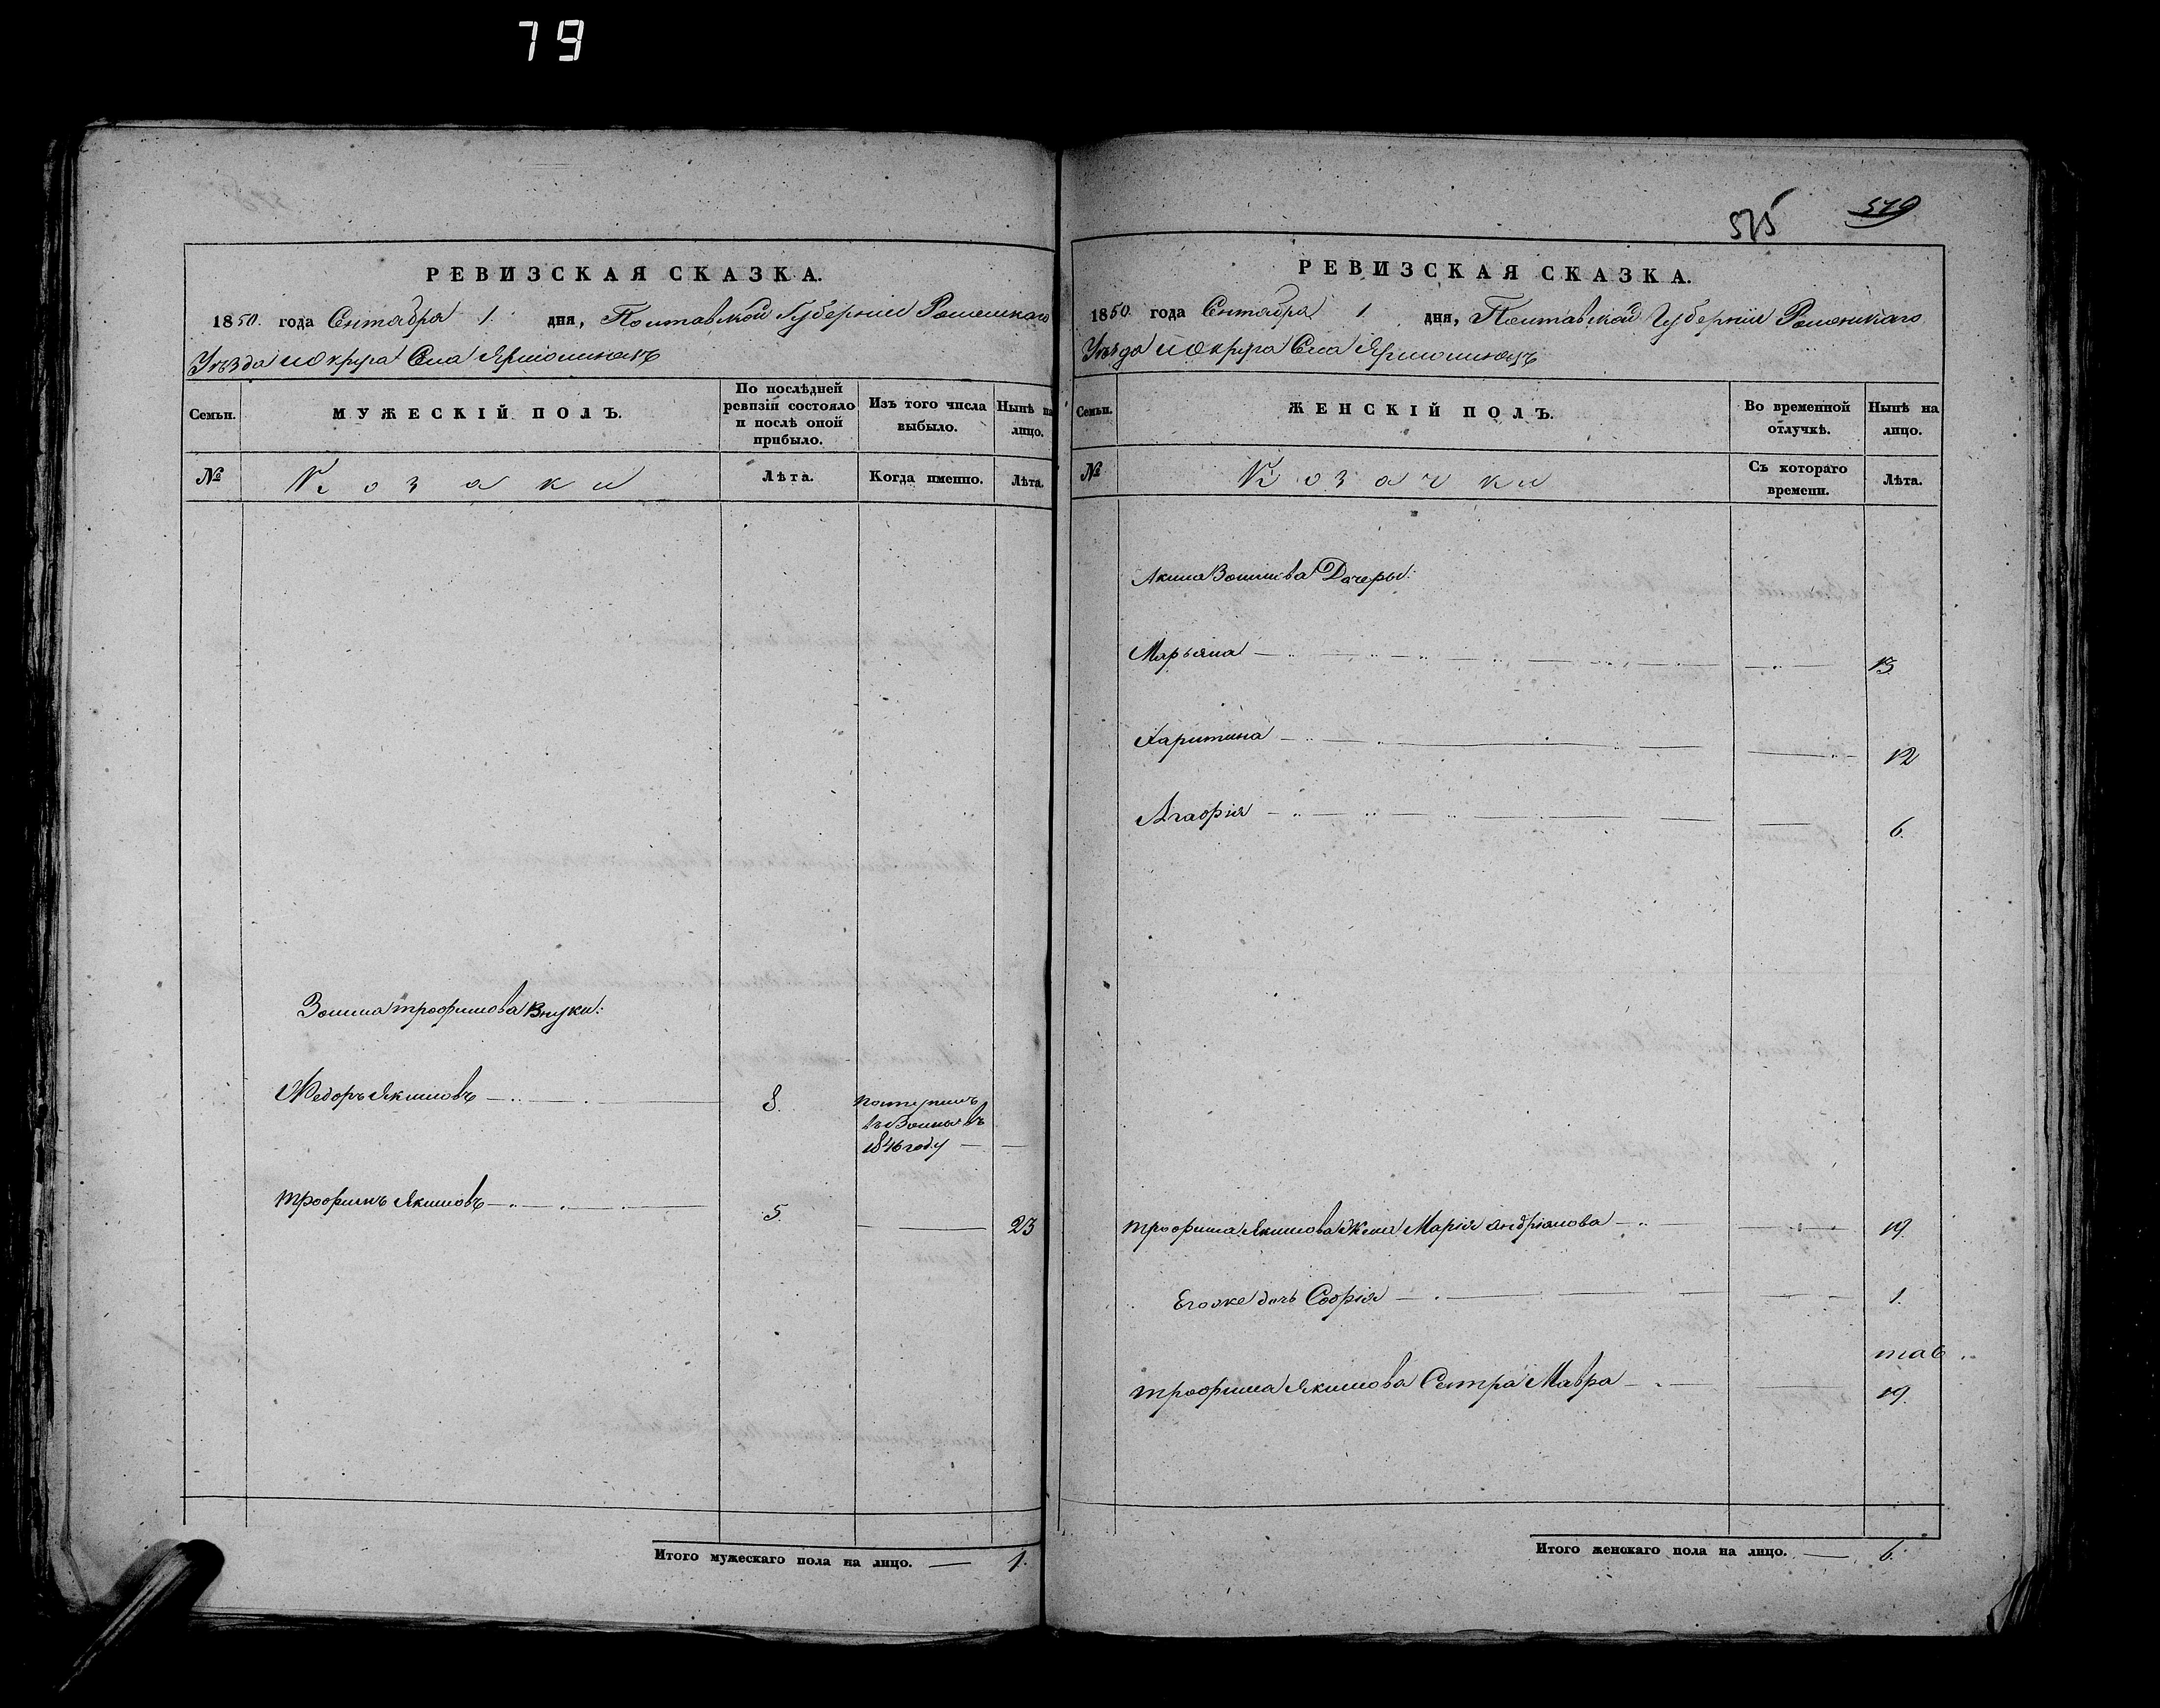 79
РЕВИЗСКАЯ СКАЗКА.
1850. года Сентября 1. дня, Полтавской Губерніи Роменскаго
Уѣзда и Округа Села Ярмолинецъ
Семьи.
МУЖЕСКІЙ ПОЛЪ.
По послѣдней ревизіи состояло и послѣ оной прибыло.
Изъ того числа выбыло.
Нынѣ на лицо.
№
Козаки
Лѣта.
Когда именно.
Лѣта.
Зошма трофимова Внуки:
Федоръ Якимовъ
8.
поступилъ
въ
1846 году
трофимъ Якимовъ
5.
23
Итого мужескаго пола на лицо. — 1.
575
519
РЕВИЗСКАЯ СКАЗКА.
1850. года Сентября 1 дня, Полтавской Губерніи Роменскаго
Уѣзда и Округа Села Ярмолинецъ
Семьи.
ЖЕНСКІЙ ПОЛЪ.
Во временной отлучкѣ.
Нынѣ на лицо.
№
Козачки
Съ котораго времени.
Лѣта.
Якима Дочеры:
Марьяна 13
Харитина 12
Агафія 6.
трофима Якимова Жена Марія андріянова 19.
Его же дочь Софія 1.
трофима Якимова Сестра Мавра 19.
Итого женскаго пола на лицо. — 6.